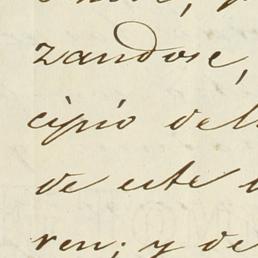 zandose,
cipio del
de este
ren; y de